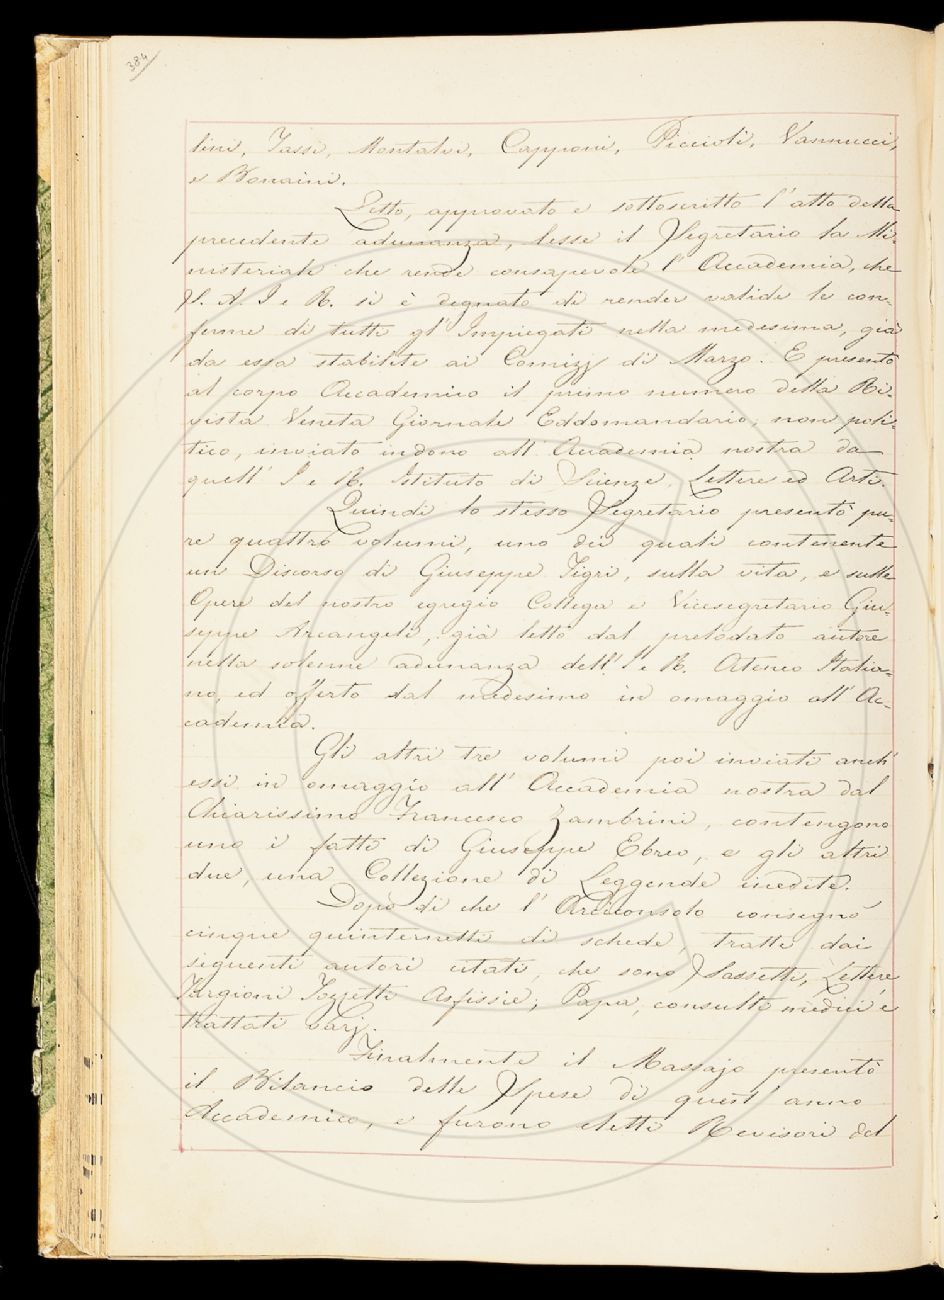 384
lini, Tassi, Montalvi, Capponi, Piccioli, Vannucci,
e Bonaini.
Letto, approvato e sottoscritto l'atto della
precedente adunanza, lesse il Segretario la Mi-
nisteriale che rende consapevole l'Accademia, che
S. A. I e R. si è degnato di render valide le con-
ferme di tutti gl'Impiegati nella medesima, già
da essa stabilite ai Comizj di Marzo. E presentò
al corpo Accademico il primo numero della Ri-
vista Veneta Giornale Eddomandario, non poli-
tico, inviato indono all'Accademia nostra da
quell'I e R. Istituto di Scienze, Lettere ed Arti.
Quindi lo stesso Segretario presentò pu-
re quattro volumi, uno dei quali contenente
un Discorso di Giuseppe Tigri, sulla vita, e sulle
Opere del nostro egregio Collega e Vicesegretario Giu-
seppe Arcangeli, già letto dal prelodato autore
nella solenne adunanza dell'I e R. Ateneo Italia-
no, ed offerto dal medesimo in omaggio all'Ac-
cademia.
Gli altri tre volumi poi inviati anch'
essi in omaggio all'Accademia nostra dal
Chiarissimo Francesco Zambrini, contengono
uno i fatti di Giuseppe Ebreo, e gli altri
due, una Collezione di Leggende inedite.
Dopo di che l'Arciconsolo consegnò
cinque quinternetti di schede, tratte dai
seguenti autori citati, che sono Sassetti, Lettere
Targioni Tozzetti Asfissie; Papa, consulti medici e
trattati varj.
Finalmente il Massajo presentò
il Bilancio delle Spese di quest'anno
Accademico, e furono eletti Revisori del